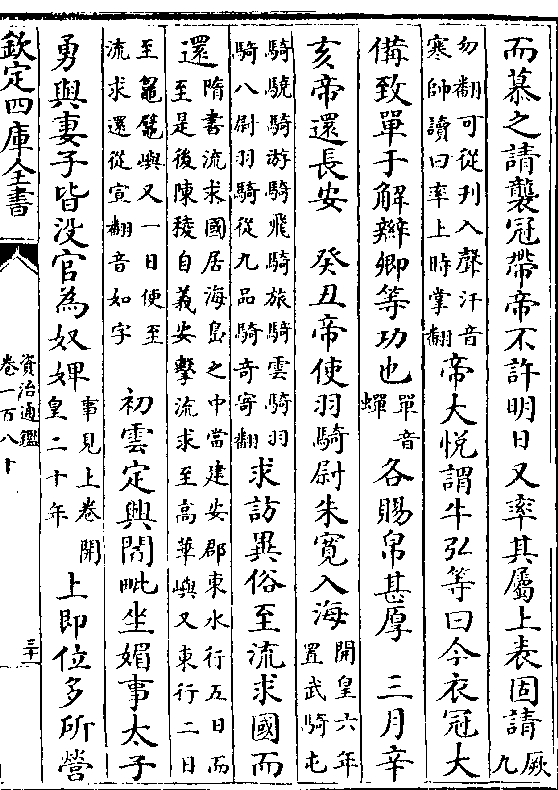 而慕之請襲冠帶帝不許明日又率其屬上表固請厥九
勿翻可從刋入聲汗音
寒帥讀曰率上時掌翻
帝大悦謂牛弘等曰今衣冠大
備致單于解辮卿等功也單音
蟬
各賜帛甚厚　三月辛
亥帝還長安　癸丑帝使羽騎尉朱寛入海開皇六年
置武騎屯
騎驍騎游騎飛騎旅騎雲騎羽
騎八尉羽騎從九品騎奇寄翻
求訪異俗至流求國而
還隋書流求國居海島之中當建安郡東水行五日而
至是後陳稜自義安擊流求至高華嶼又東行二日
至鼊嶼又一日便至
流求還從宣翻音如字
初雲定興閻毗坐媚事太子
勇與妻子皆没官為奴婢事見上卷開
皇二十年
上即位多所營
欽定四庫全書
資治通鑑
卷一百八十
三十一